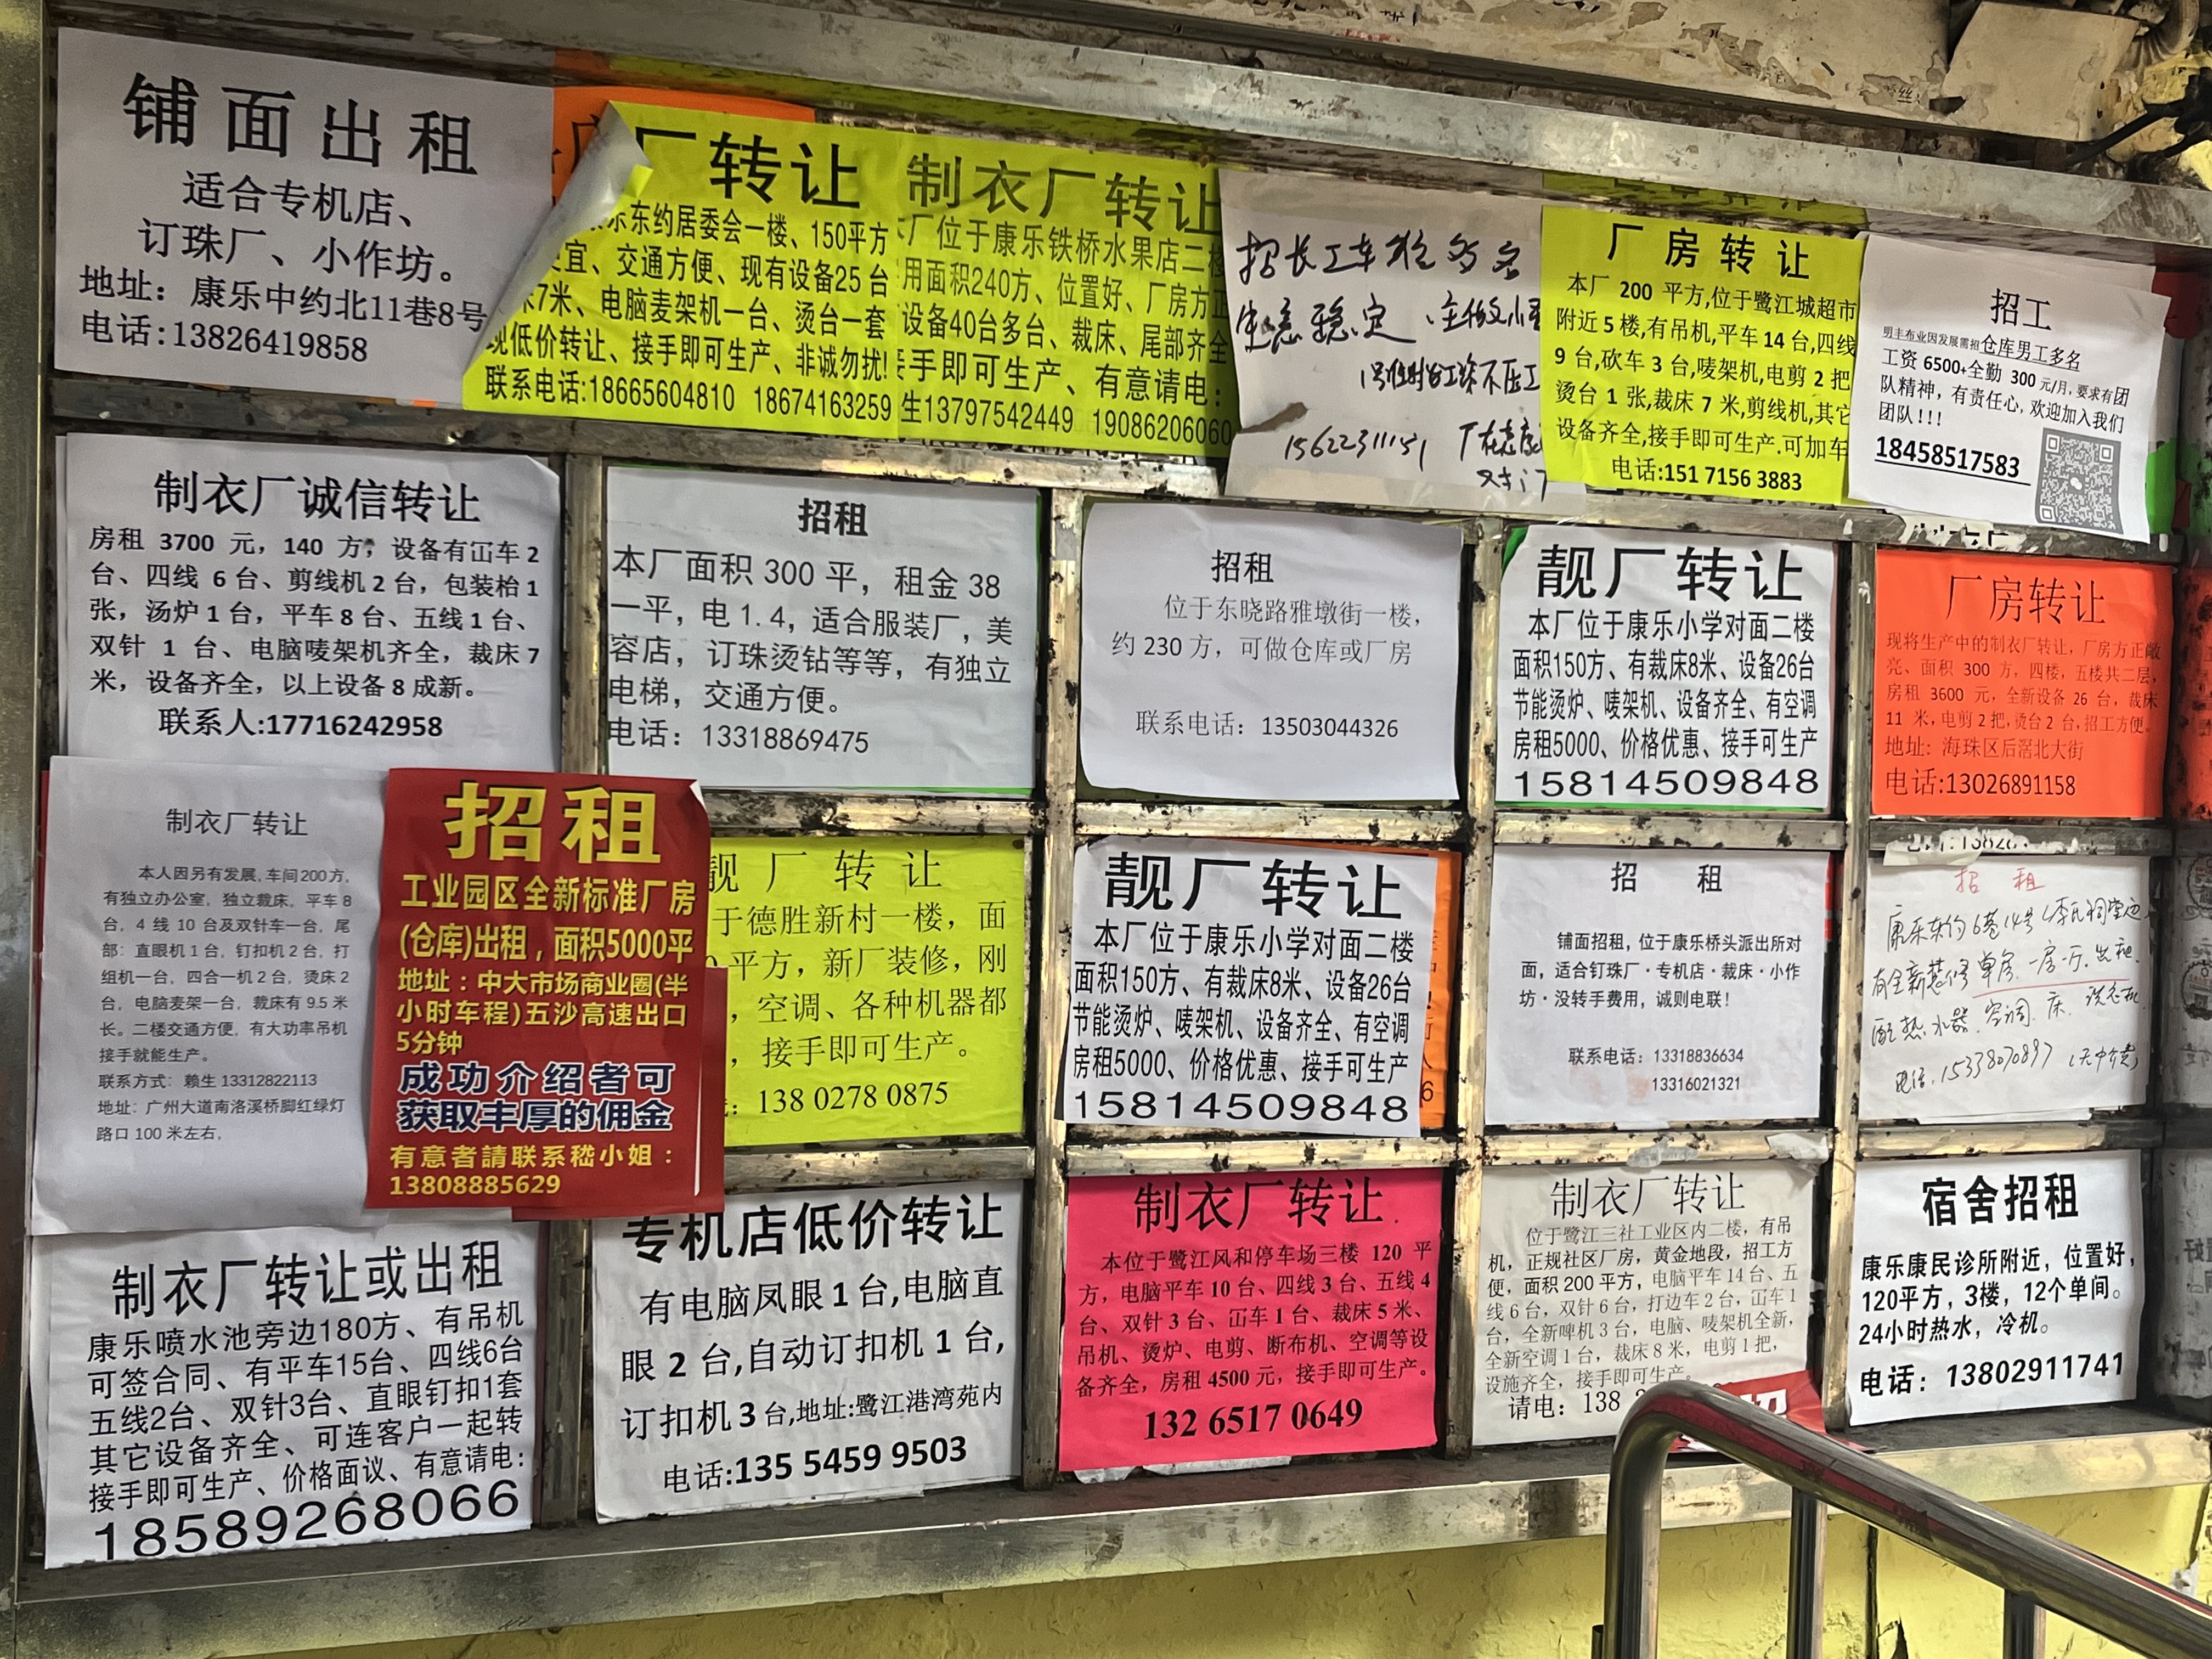 铺面出租
适合专机店、
订珠厂、小作坊。
地址：康乐中约北11巷8号
电话:13826419858
厂转让
乐东约居委会一楼、150平方
宜、交通方便、现有设备25台
7米、电脑麦架机一台、烫台一套
现低价转让、接手即可生产、非诚勿扰!
联系电话:18665604810 18674163259
制衣厂转让
厂位于康乐铁桥水果店二楼
用面积240方、位置好、厂房方正
设备40台多台、裁床、尾部齐全
接手即可生产、有意请电：
生13797542449 19086206060
招长工车位多名
生意稳定、主做小
工不压工
15622311151 厂在
对门
厂房转让
本厂 200 平方,位于鹭江城超市
附近5楼,有吊机,平车14台,四线
9台,砍车3台,唛架机,电剪2把
烫台1张,裁床7米,剪线机,其它
设备齐全,接手即可生产.可加车
电话:151 7156 3883
招工
明丰布业因发展需招仓库男工多名
工资 6500+全勤 300 元/月, 要求有团
队精神，有责任心, 欢迎加入我们
团队!!!
18458517583
制衣厂诚信转让
房租 3700 元，140 方；设备有冚车2
台、四线 6 台、剪线机2台，包装枱1
张，汤炉1台，平车8台、五线1台、
双针 1 台、电脑唛架机齐全，裁床7
米，设备齐全，以上设备8成新。
联系人:17716242958
招租
本厂面积 300 平，租金 38
一平，电 1.4，适合服装厂，美
容店，订珠烫钻等等，有独立
电梯，交通方便。
电话：13318869475
招租
位于东晓路雅墩街一楼，
约 230 方，可做仓库或厂房
联系电话：13503044326
靓厂转让
本厂位于康乐小学对面二楼
面积150方、有裁床8米、设备26台
节能烫炉、唛架机、设备齐全、有空调
房租5000、价格优惠、接手可生产
15814509848
厂房转让
现将生产中的制衣厂转让，厂房方正敞
亮、面积 300 方，四楼，五楼共二层，
房租 3600 元，全新设备 26 台，裁床
11 米，电剪2把，烫台2台，招工方便。
地址：海珠区后滘北大街
电话:13026891158
制衣厂转让
本人因另有发展, 车间200方,
有独立办公室，独立裁床，平车8
台，4 线 10 台及双针车一台，尾
部：直眼机1台，钉扣机2台，打
组机一台，四合一机2台，烫床2
台，电脑麦架一台，裁床有 9.5 米
长。二楼交通方便，有大功率吊机
接手就能生产。
联系方式：赖生 13312822113
地址：广州大道南洛溪桥脚红绿灯
路口 100 米左右,
招租
工业园区全新标准厂房
(仓库)出租，面积5000平
地址：中大市场商业圈(半
小时车程)五沙高速出口
5分钟
成功介绍者可
获取丰厚的佣金
有意者請联系嵇小姐：
13808885629
靓厂转让
于德胜新村一楼，面
平方，新厂装修，刚
，空调、各种机器都
，接手即可生产。
：138 0278 0875
靓厂转让
本厂位于康乐小学对面二楼
面积150方、有裁床8米、设备26台
节能烫炉、唛架机、设备齐全、有空调
房租5000、价格优惠、接手可生产
15814509848
招 租
铺面招租，位于康乐桥头派出所对
面，适合钉珠厂·专机店·裁床·小作
坊·没转手费用，诚则电联！
联系电话：13318836634
13316021321
招 租
康乐东约6巷14号(李氏祠堂边
有全新装修 单房. 一房一厅. 出租.
配热水器. 空调. 床. 洗衣机.
电话. 15338070897 (无中介费)
制衣厂转让或出租
康乐喷水池旁边180方、有吊机
可签合同、有平车15台、四线6台
五线2台、双针3台、直眼钉扣1套
其它设备齐全、可连客户一起转
接手即可生产、价格面议、有意请电:
18589268066
专机店低价转让
有电脑凤眼1台,电脑直
眼 2 台,自动订扣机 1 台,
订扣机3台,地址:鹭江港湾苑内
电话:135 5459 9503
制衣厂转让
本位于鹭江风和停车场三楼 120 平
方，电脑平车10台、四线3台、五线4
台、双针3台、冚车1台、裁床5米、
吊机、烫炉、电剪、断布机、空调等设
备齐全，房租4500元，接手即可生产。
132 6517 0649
制衣厂转让
位于鹭江三社工业区内二楼，有吊
机，正规社区厂房，黄金地段，招工方
便，面积200平方，电脑平车14台、五
线6台，双针6台，打边车2台，冚车1
台，全新啤机3台，电脑、唛架机全新，
全新空调1台，裁床8米，电剪1把，
设施齐全，接手即可生产。
请电：138
宿舍招租
康乐康民诊所附近，位置好，
120平方，3楼，12个单间。
24小时热水，冷机。
电话：13802911741